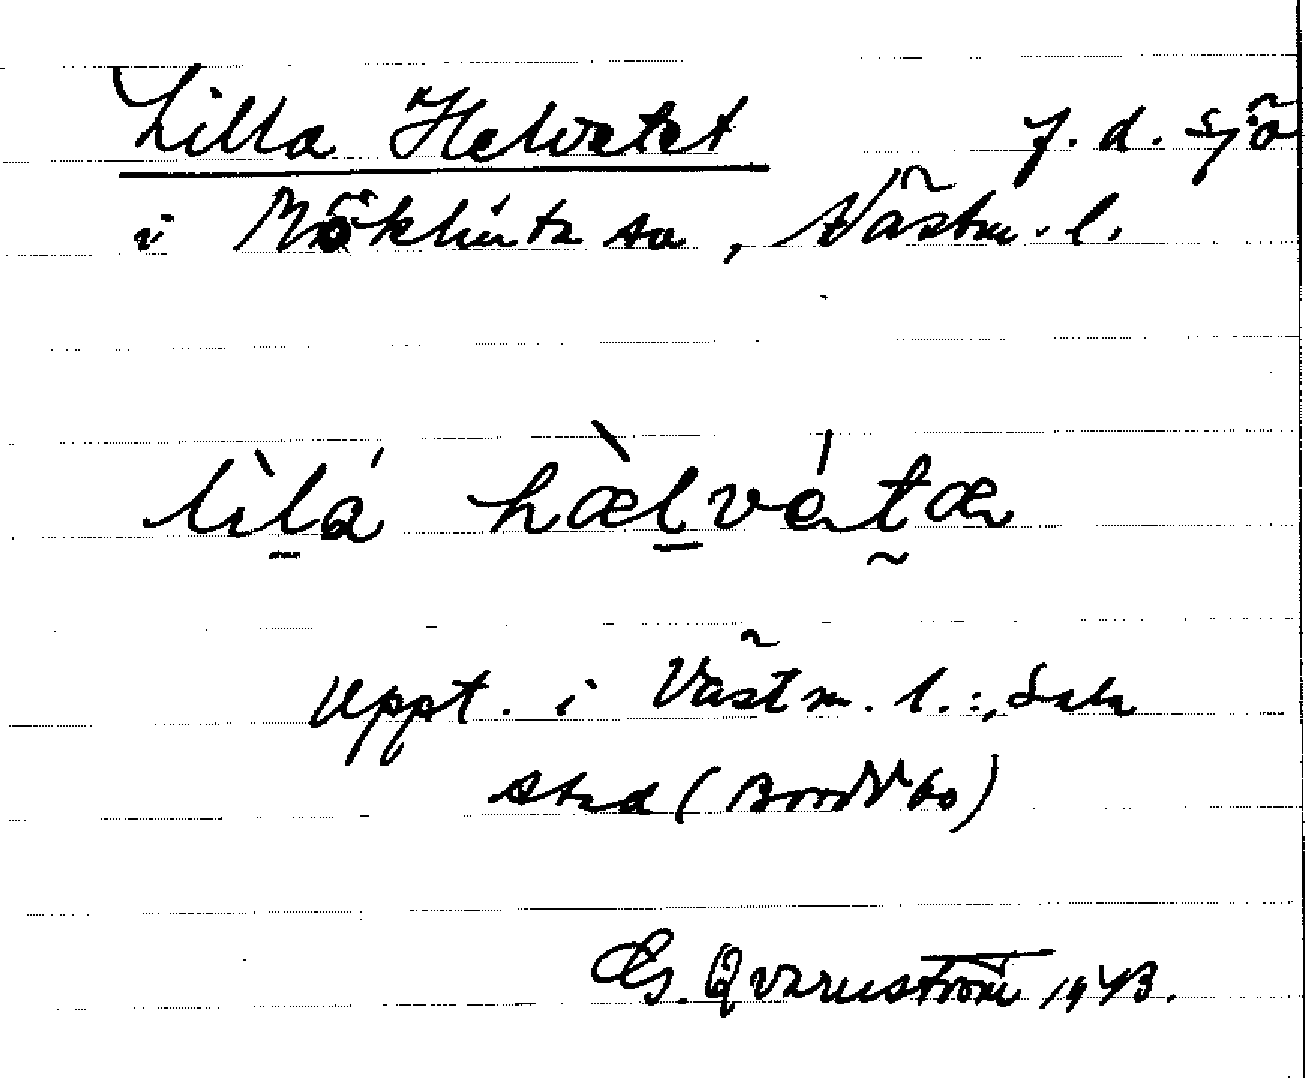 Lilla Helvetet f. d. sjö
i Möklinta sn, Västm. l.
lìlá hælvétæ
Uppt. i Västm. l.: Sala
stad (
G. Qvarnström 1943.